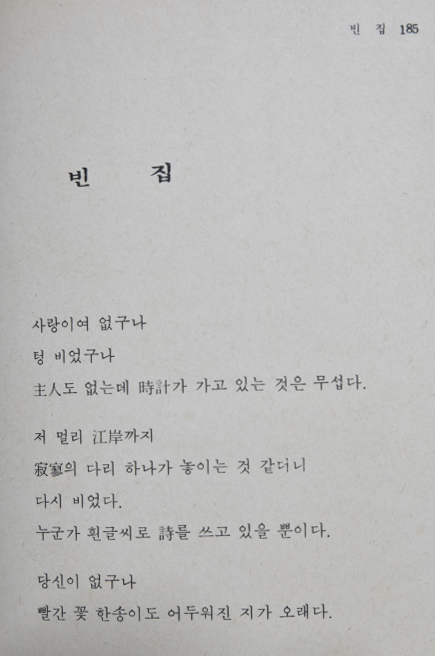 빈 집 185
빈 집
사랑이여 없구나
텅 비었구나
主人도 없는데 時計가 가고 있는 것은 무섭다.
저 멀리 江岸까지
寂寥의 다리 하나가 놓이는 것 같더니
다시 비었다.
누군가 흰글씨로 詩를 쓰고 있을 뿐이다.
당신이 없구나
빨간 꽃 한송이도 어두워진 지가 오래다.